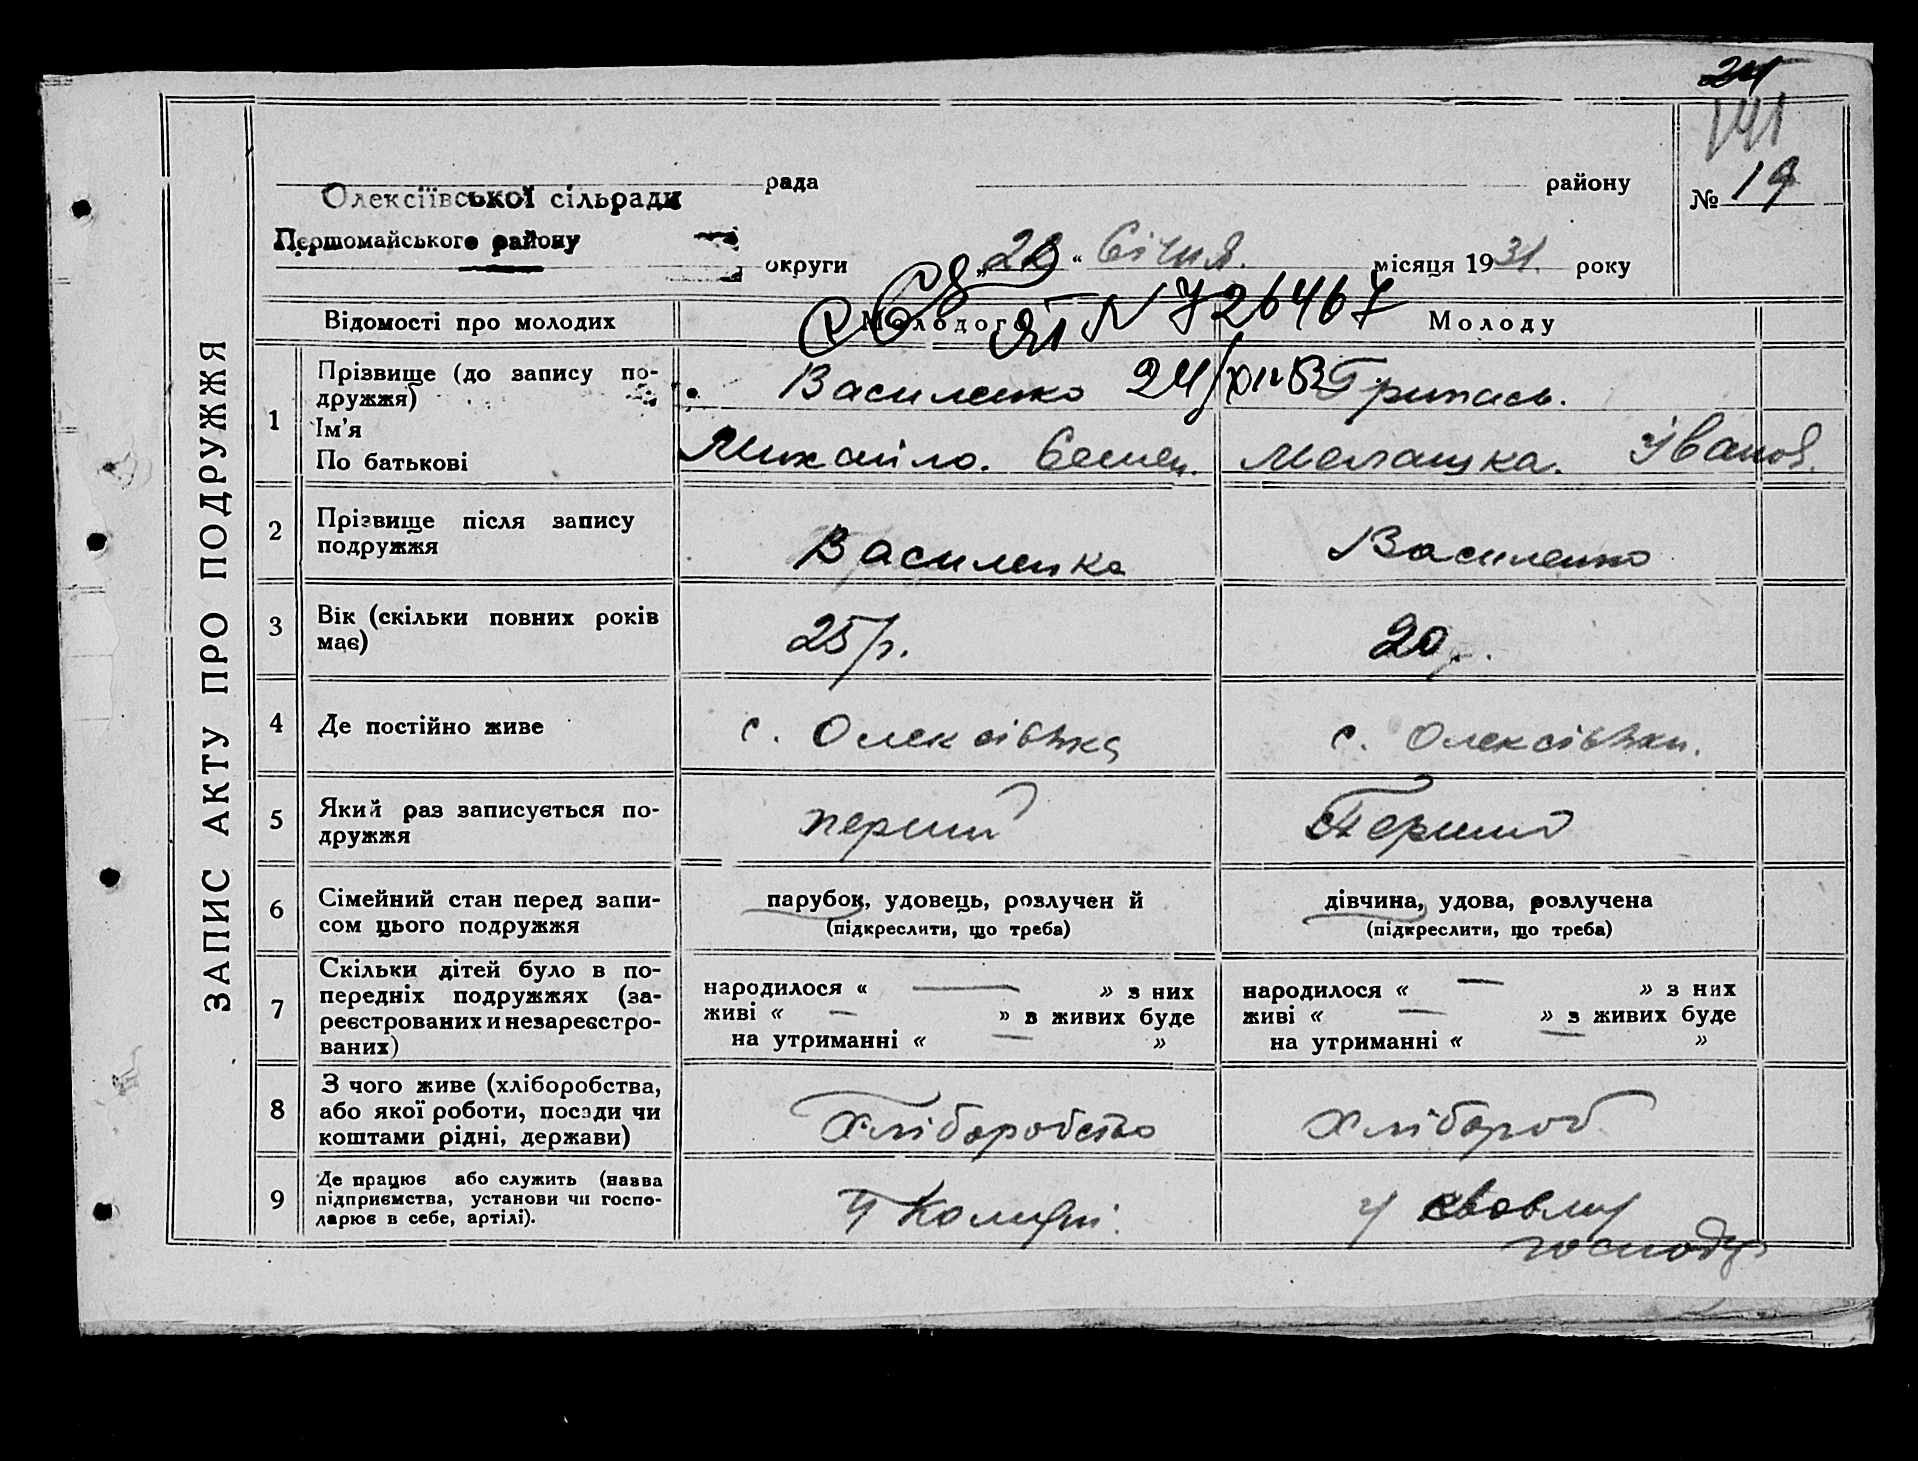 141
Олексіївської сільради рада району
№ 19
Першомайського району
округи " " Січня місяця 1931. року
№ 726467
Відомості про молодих Молодого Молоду
ЗАПИС АКТУ ПРО ПОДРУЖЖЯ
1
Прізвище (до запису по-
дружжя)
Василенко 24/XII-53
Ім'я
По батькові
Михайло. Семен. Мелашка. Іванов.
2
Прізвище після запису
подружжя
Василенко Василенко
3
Вік (скільки повних років
має)
25 р. 20
4
Де постійно живе
с. Олексіївка с. Олексіївки.
5
Який раз записується по-
дружжя
перший Перший
6
Сімейний стан перед запи-
сом цього подружжя
парубок, удовець, розлучен й
(підкреслити, що треба)
дівчина, удова, розлучена
(підкреслити, що треба)
7
Скільки дітей було в по-
передніх подружжях (за-
реєстрованих и незареєстро-
ваних)
народилося « — » з них
живі « — » в живих буде
на утриманні « — »
народилося « — » з них
живі « — » з живих буде
на утриманні « — »
8
З чого живе (хліборобства,
або якої роботи, посади чи
коштами рідні, держави)
Хліборобство Хлібороб
9
Де працює або служить (назва
підприємства, установи чи госпо-
дарює в себе, артілі).
у
у своєму
господ